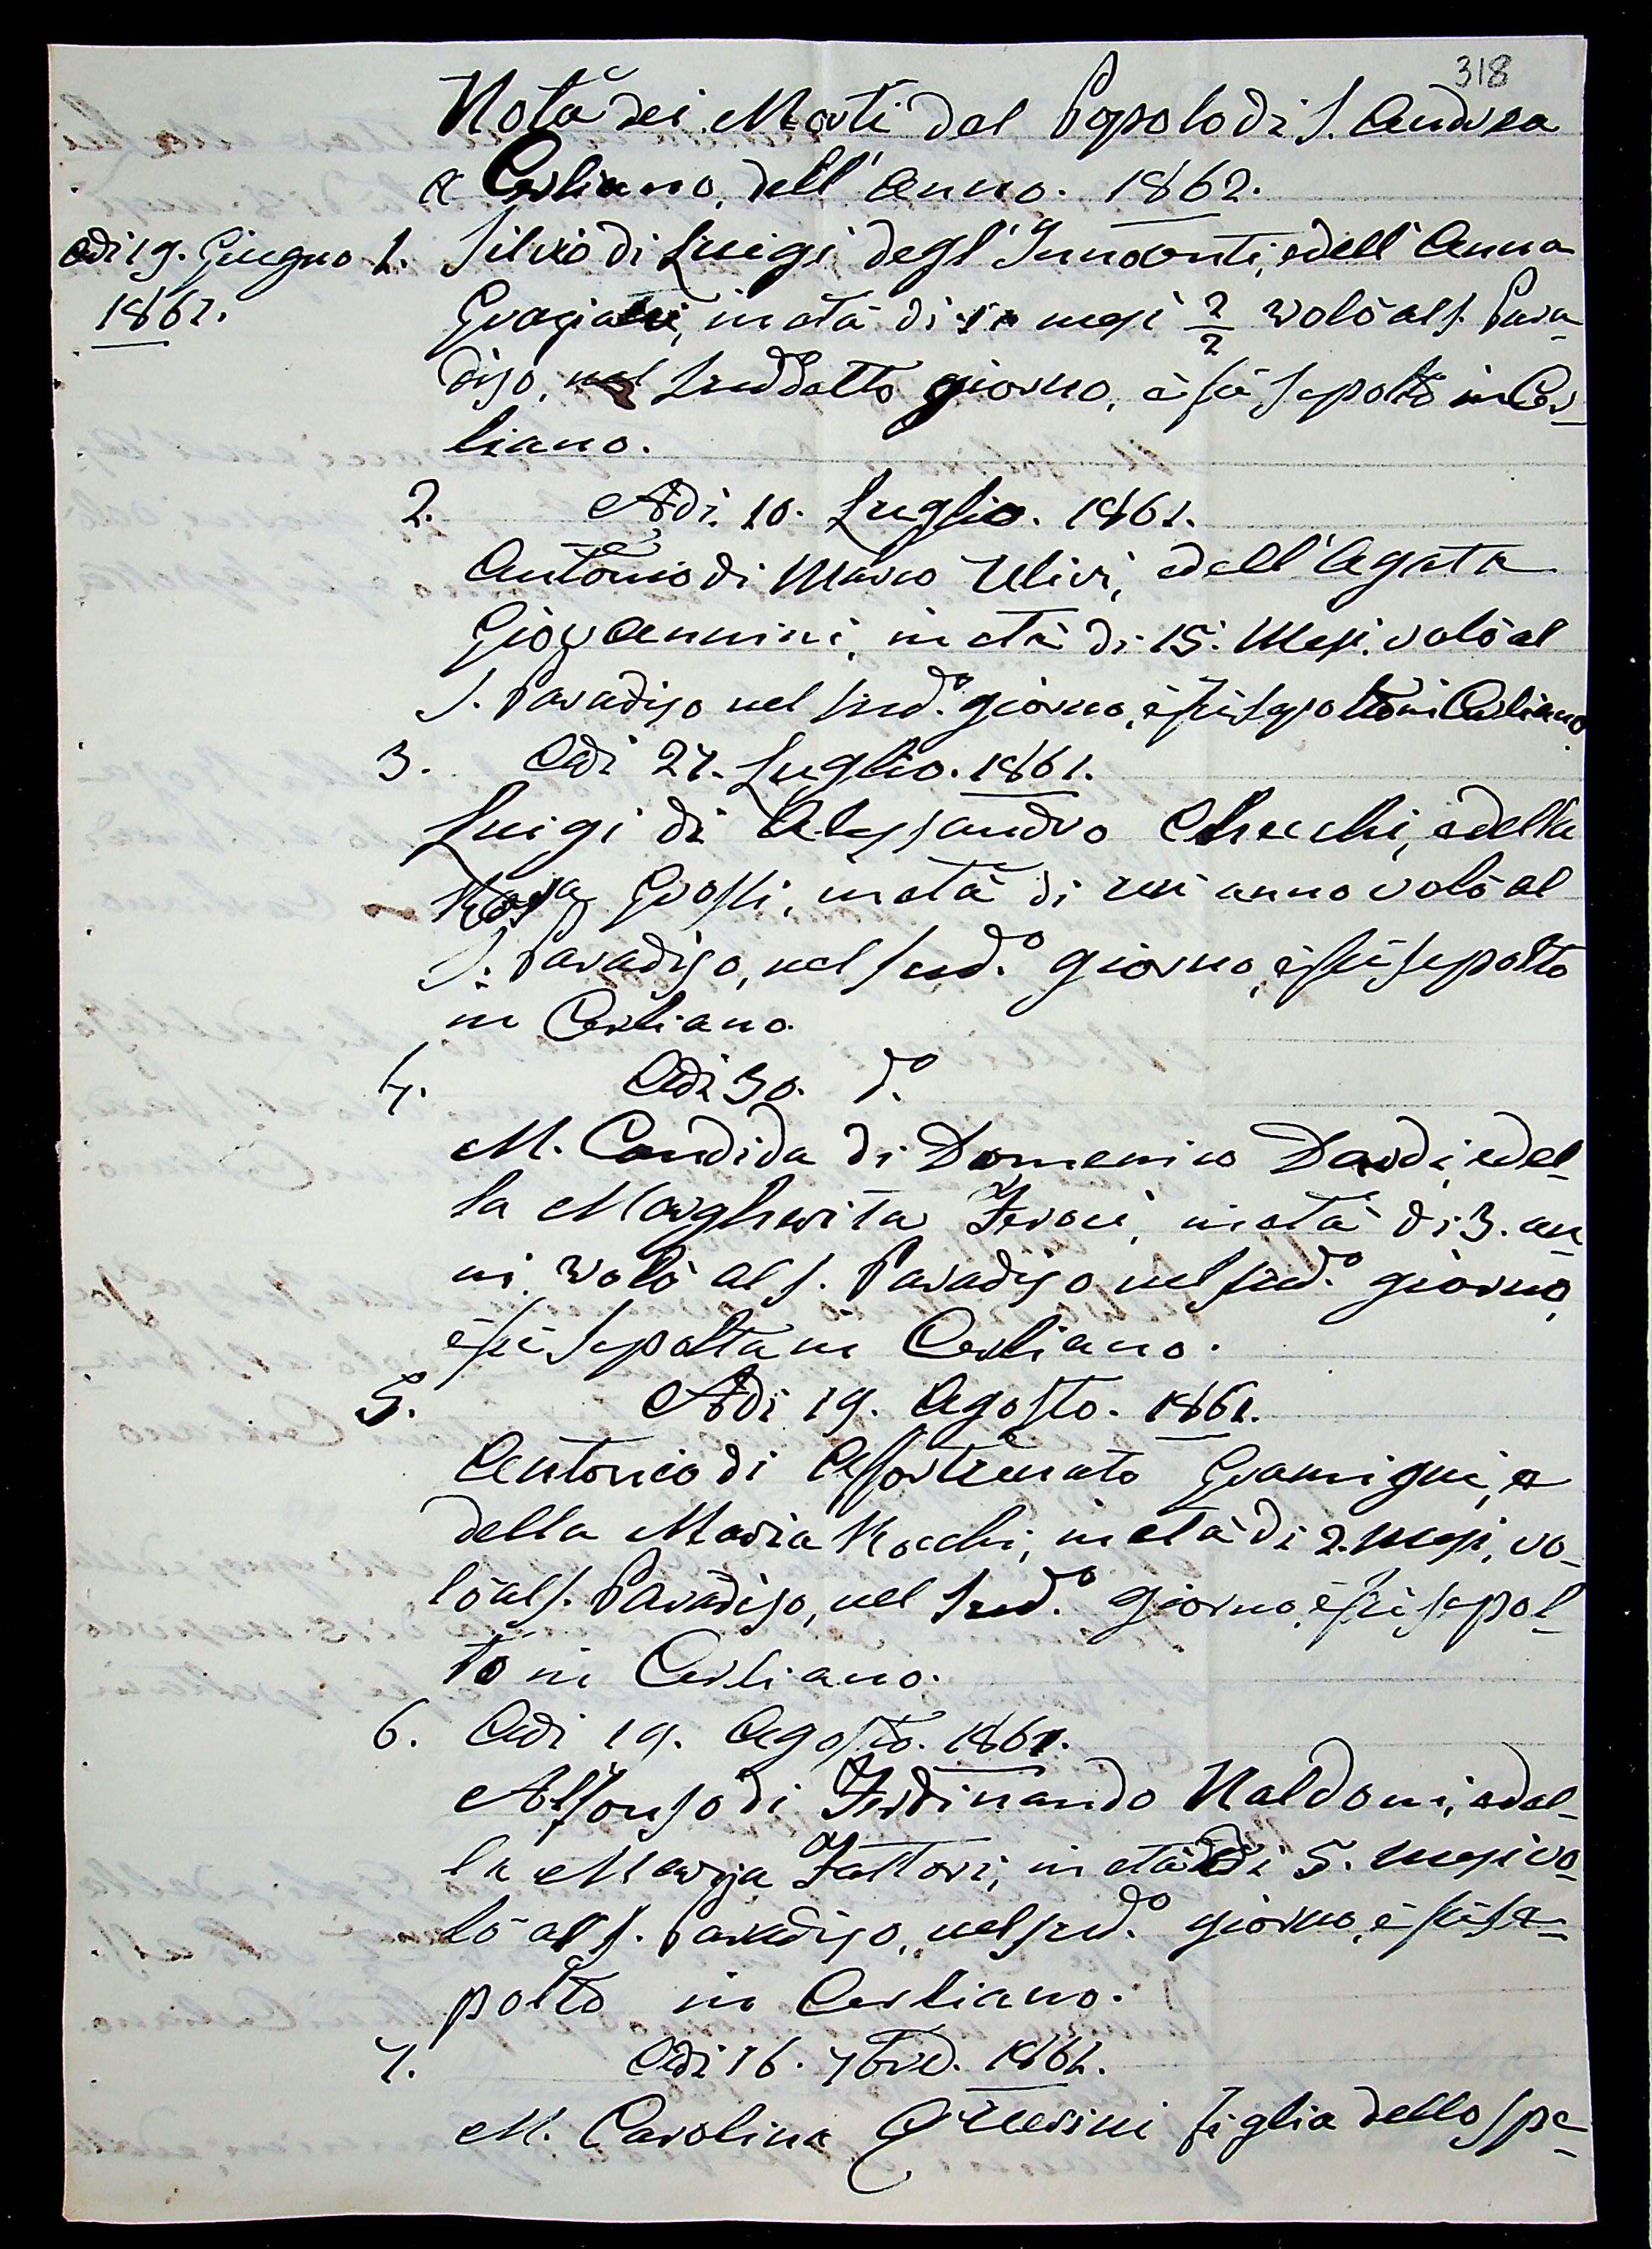 318
Nota dei Morti del Popolo di S. Andrea
a Cerliano, dell' Anno. 1862.
Adi 19. Giugno 1. Silvio di Luigi degl' Innocenti, e dell' Anna
1861. Graziani, in età di mesi 2/2 volò al S. Para-
diso, nel suddetto giorno, e fù sepolto in Cer-
liano.
2. Adì 10. Luglio. 1861.
Antonio di Marco Ulivi, e dell' Agata
Giovannini, in età di 15. Mesi. volò al
S. Paradiso nel sud.o giorno, e fù sepolto in Cerliano
3. Adi 27. Luglio. 1861.
Luigi di Alessandro Checchi, e della
Rosa Grossi, in età di un anno volò al
S. Paradiso, nel sud.o giorno, e fù sepolto
in Cerliano.
4. Adi 30. d.o
M. Candida di Domenico Dardi, e del-
la Margherita Feroci, in età di 3. an-
ni. volò al S. Paradiso nel sud.o giorno,
e fù sepolta in Cerliano.
5. Adì 19. Agosto. 1861.
Antonio di Affortunato Gramigni, e
della Maria Rocchi, in età di 2. mesi, vo-
lò al S. Paradiso, nel sud.o giorno, e fù sepol-
to in Cerliano.
6. Adi 19. Agosto. 1861.
Alfonso di Ferdinando Naldoni, e del-
la Maria Fattori, in età di 5. mesi vo-
lò al S. Paradiso, nel sud.o giorno, e fù se-
polto in Cerliano.
7. Adi 16. 7bre. 1861.
M. Carolina figlia dello Spe-